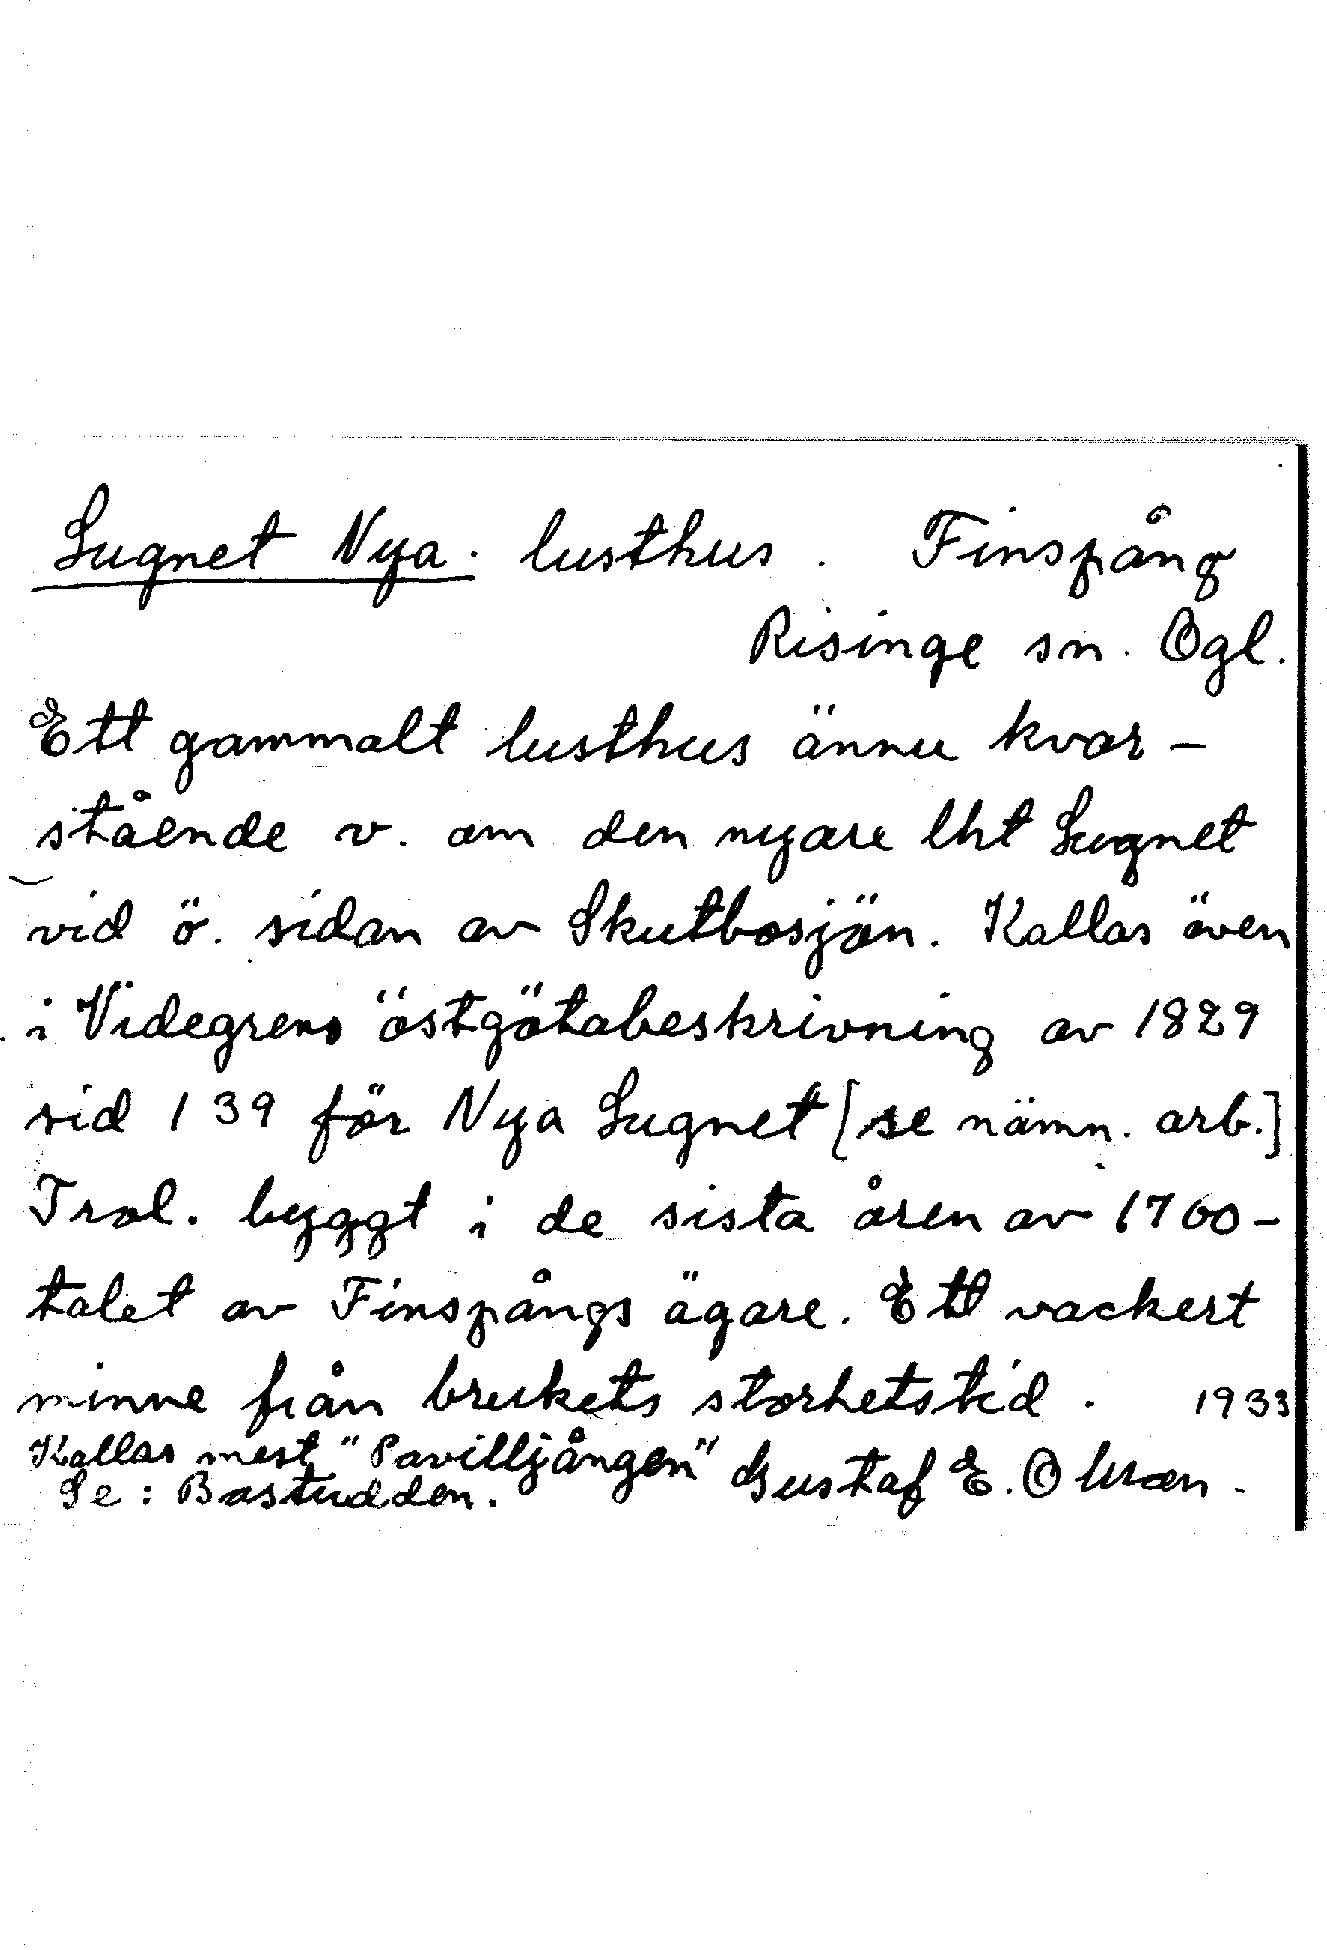 Lugnet Nya. lusthus. Finspång
Risinge sn. Ögl.
Ett gammalt lusthus ännu kvar-
stående v. om den nyare lht Lugnet
vid ö. sidan av Skutbosjön. Kallas även
i Videgrens östgötabeskrivning av 1829
sid 139 för Nya Lugnet [se nämn. arb.]
Trol. byggt i de sista åren av 1700-
talet av Finspångs ägare. Ett vackert
minne från brukets storhetstid. 1933
Kallas mest "Pavilljången" Gustaf E. Olsson.
Se: Bastudden.